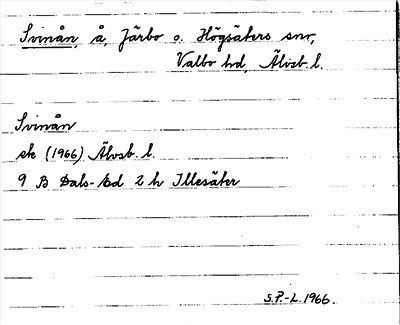 Svinån, å, Järbo o. Högsäters snr,
Valbo hd, Älvsb. l.
Svinån
ek (1966) Älvsb. l.
9 B Dals-Ed 2 h Illesäter
S.P.-L. 1966.